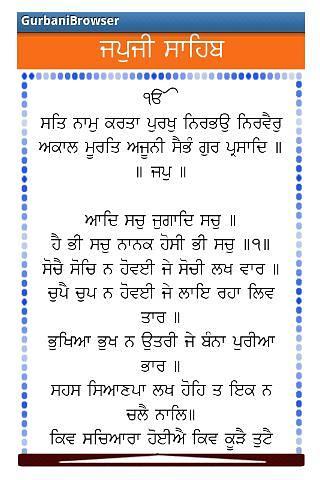 GurbaniBrowser
ਜਪੁਜੀ ਸਾਹਿਬ
ੴ
ਸਤਿ ਨਾਮੁ ਕਰਤਾ ਪੁਰਖੁ ਨਿਰਭਉ ਨਿਰਵੈਰੁ
ਅਕਾਲ ਮੂਰਤਿ ਅਜੂਨੀ ਸੈਭੰ ਗੁਰ ਪ੍ਰਸਾਦਿ ॥
॥ ਜਪੁ ॥
ਆਦਿ ਸਚੁ ਜੁਗਾਦਿ ਸਚੁ ॥
ਹੈ ਭੀ ਸਚੁ ਨਾਨਕ ਹੋਸੀ ਭੀ ਸਚੁ ॥੧॥
ਸੋਚੈ ਸੋਚਿ ਨ ਹੋਵਈ ਜੇ ਸੋਚੀ ਲਖ ਵਾਰ ॥
ਚੁਪੈ ਚੁਪ ਨ ਹੋਵਈ ਜੇ ਲਾਇ ਰਹਾ ਲਿਵ
ਤਾਰ ॥
ਭੁਖਿਆ ਭੁਖ ਨ ਉਤਰੀ ਜੇ ਬੰਨਾ ਪੁਰੀਆ
ਭਾਰ ॥
ਸਹਸ ਸਿਆਣਪਾ ਲਖ ਹੋਹਿ ਤ ਇਕ ਨ
ਚਲੈ ਨਾਲਿ॥
ਕਿਵ ਸਚਿਆਰਾ ਹੋਈਐ ਕਿਵ ਕੂੜੈ ਤੁਟੈ